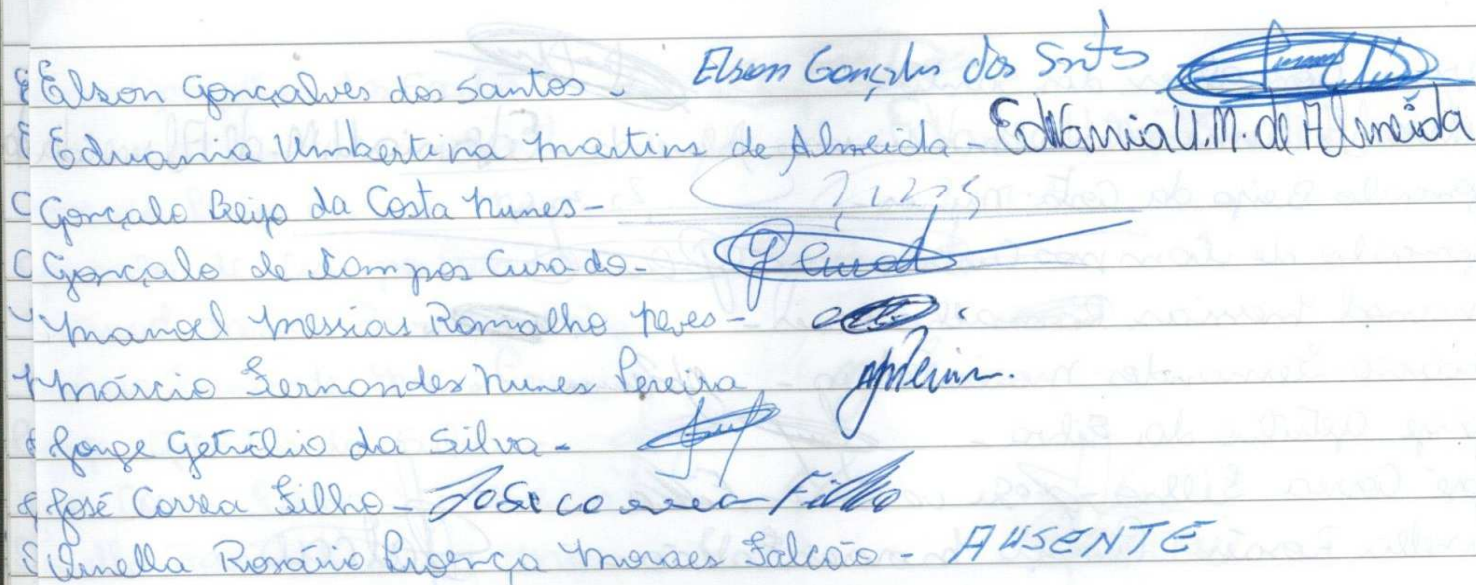 Elson Gonçalves dos Santos - Elson Gonçalves dos Santos
Edvania Umbertina Martins de Almeida - Edvania U.M. de Almeida
Gonçalo Beijo da Costa Nunes -
Gonçalo de Campos Curado -
Manoel Messias Ramalho Neves -
Márcio Fernandes Nunes Pereira
Jorge Getúlio da Silva -
José Correa Filho - José Correia Filho
Rosário Proença Moraes Falcão - AUSENTE